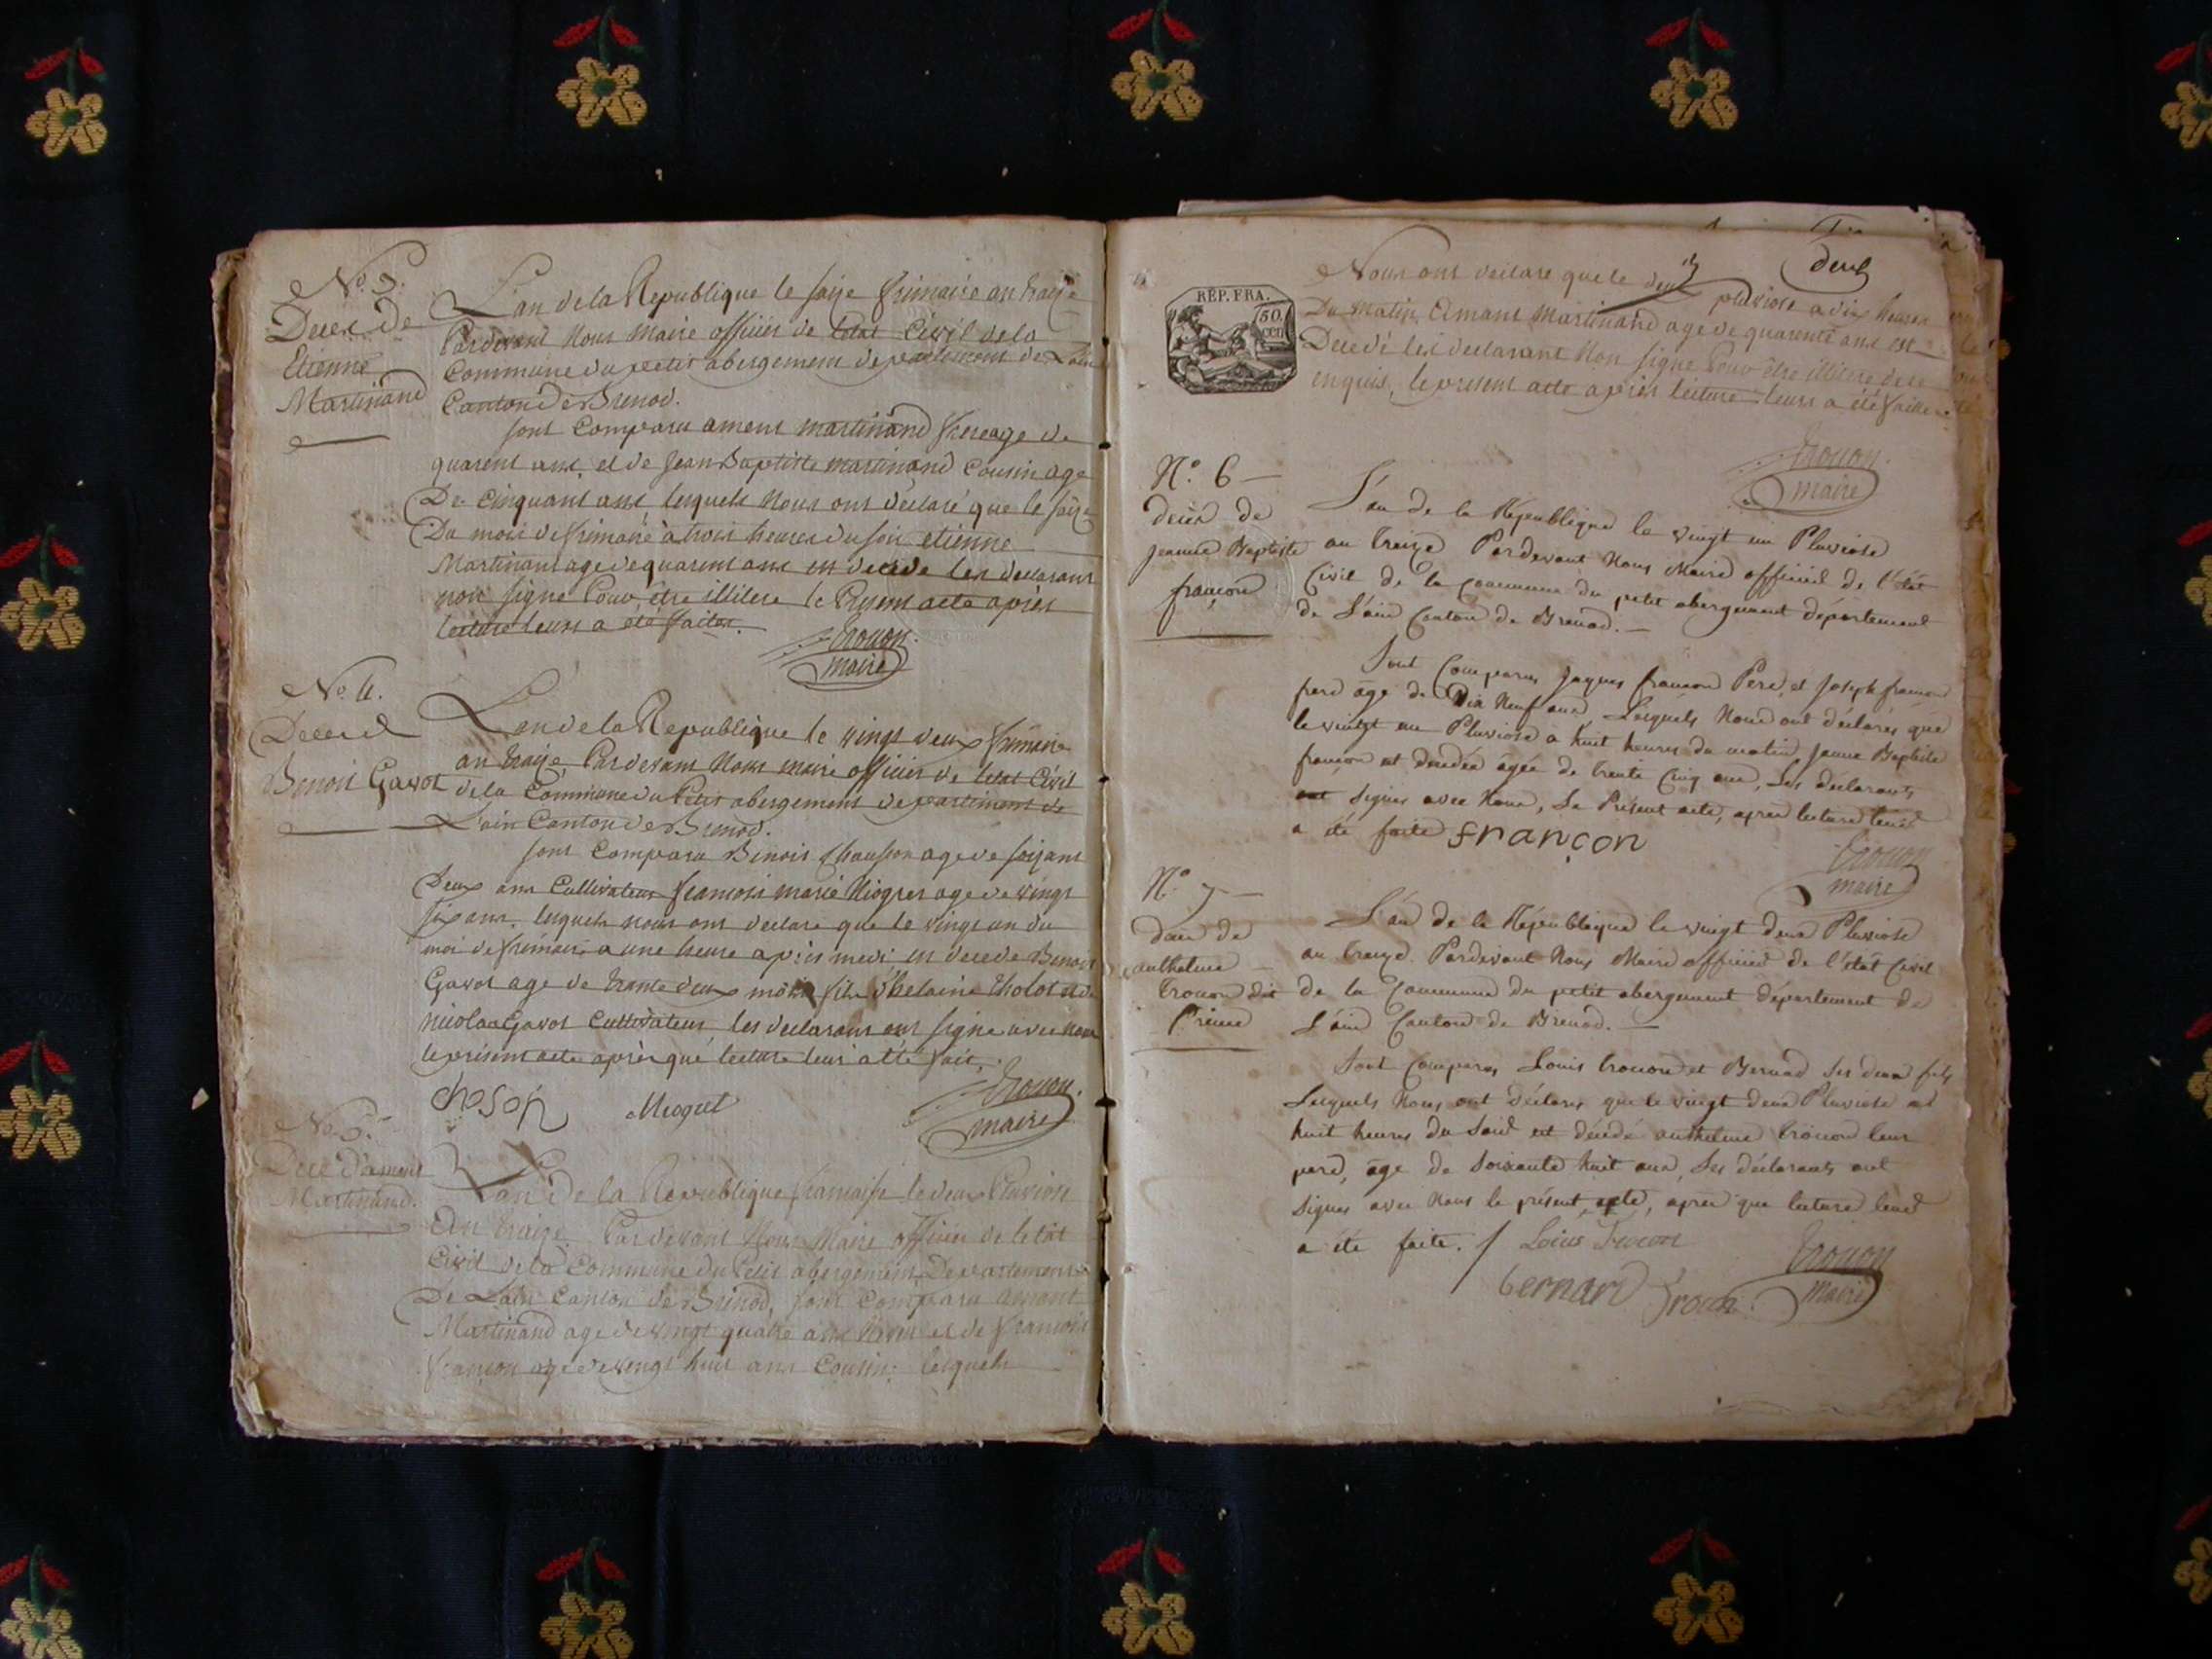 No. 3.
Deces de
Etienne
Martinand
L'an de la Republique le saize frimaire an traize
Pardevant Nous maire officier de letat Civil de la
Commune du petit abergement departement de Lain
Canton de Brenod.
sont Comparu amant martinand frere age de
quarent ans et de Jean Baptiste martinand Cousin age
De Cinquant ans lesquels Nous ont declaré que le saize
Du mois de frimaire à trois heures du soir etienne
Martinant age de quarent ans est decede les declarans
non signe Pour être illitere le Present acte après
lecture leurs a eté faites.
trouon.
maire
No. 4.
Deces de
Benoit Gavot
L'an de la Republique le vingt deux frimaire
an traize Pardevant Nous maire officier de letat Civil
de la Commune du Petit abergement departiment de
L'ain Canton de Brenod.
sont Comparu Benoit Chauson age de soizant
Deux ans Cultivateur francois marie Niogret age de vingt
six ans lesquels nous ont declare que le vingt un du
moi de frimaire a une heure après medi est decede Benoit
Gavot age de trante deux mois fils d'helaine tholot et de
nicolas Gavot Cultivateur les declarans ont signe avec nous
le present acte après que lecture leur a été fait.
choson Niogret trouon.
maire
No. 5.
Dece d'amant
Martinand.
L'an de la Republique francaise le deux Pluviose
An traize Pardevant Nous Maire officier de letat
Civil de la Commune du Petit abergement Departement
De Lain Canton de Brenod, sont Comparu amant
Martinand age de vingt quatre ans et de francois
françon age de vingt huit ans Cousin. lesquels
deux
RÉP. FRA.
50 cen
Nous ont declare que le deux pluviose a dix heures
Du Matin Amant Martinand age de quarente ans est
Decedé les declarant Non signe Pour être illitere de ce
enquis, le present acte après lecture leurs a été faite
trouon.
maire
N.° 6
decès de
jeanne Baptiste
françon
L'an de la République le vingt un Pluviose
an treize Pardevant Nous Maire officier de l'état
Civil de la Commune du petit abergement département
de L'ain Canton de Brenod.
Sont Comparus Jaques françon Pere, et Joseph françon
frere âgé de Dix Neuf ans, Lesquels Nous ont déclarés que
le vingt un Pluviose a huit heures du matin Jeanne Baptiste
françon est decedée âgée de trente Cinq ans, Les déclarants
ont signés avec Nous, Le Présent acte, après lecture leur
a été faite françon
trouon
maire
N.° 7
decès de
anthelme
trouon dit
Prieué
L'an de la République le vingt deux Pluviose
an treize. Pardevant Nous Maire officier de l'état Civil
de la Commune du petit abergement département de
L'ain Canton de Brenod.
Sont Comparus Louis trouon et Bernard ses deux fils
Lesquels Nous ont déclarés que le vingt deux Pluviose
huit heures du soir est décédé anthelme trouon leur
pere, âgé de soixante huit ans, Les déclarants ont
signés avec Nous le présent acte, après que lecture leur
a été faite. Louis Trouon trouon
bernard Trouon. maire